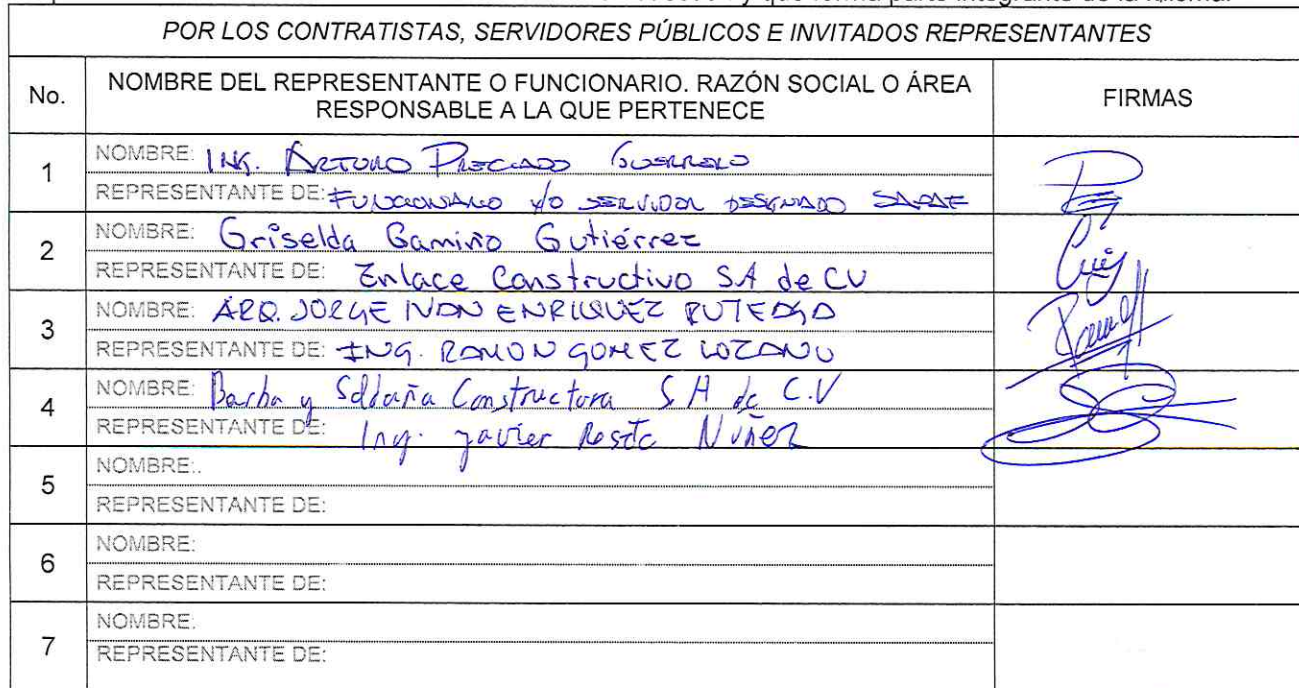 y que forma parte integrante de la misma.
POR LOS CONTRATISTAS, SERVIDORES PÚBLICOS E INVITADOS REPRESENTANTES
No.
NOMBRE DEL REPRESENTANTE O FUNCIONARIO. RAZÓN SOCIAL O ÁREA
RESPONSABLE A LA QUE PERTENECE
FIRMAS
1
NOMBRE: ING. ARTURO PRECIADO GUERRERO
REPRESENTANTE DE: FUNCIONARIO Y/O SERVIDOR DESIGNADO
2
NOMBRE: Griselda Gamiño Gutiérrez
REPRESENTANTE DE: Enlace Constructivo SA de CV
3
NOMBRE: ARQ. JORGE IVAN ENRIQUEZ
REPRESENTANTE DE: ING. RAMON GOMEZ LOZANO
4
NOMBRE: Barba y Saldaña Constructora S A de C.V
REPRESENTANTE DE: Ing. Javier Nuñez
5
NOMBRE:.
REPRESENTANTE DE:
6
NOMBRE:
REPRESENTANTE DE:
7
NOMBRE:
REPRESENTANTE DE: